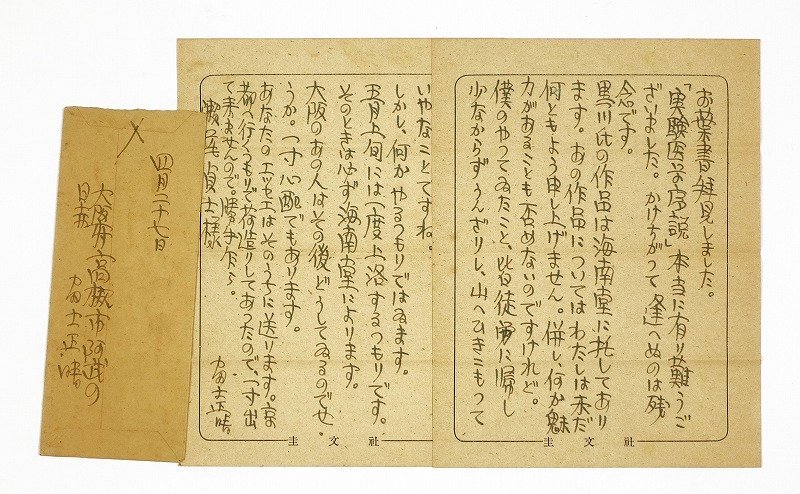 お葉書拝見しました。
「実験医学序説」本当に有り難うご
ざいました。かけちがつて逢へぬのは残
念です。
黒川氏の作品は海南堂に托してあり
ます。あの作品についてはわたしは未だ
何とも申し上げません。併し、何か魅
力があることも否めないのですけれど。
僕のやつてゐたこと、皆徒労に帰し
少なからずうんざりし、山へひきこもつて
いやなことですね。
しかし、何かやるつもりではゐます。
五月上旬には一度上洛するつもりです。
そのときは必ず海南堂によります。
大阪のあの人はその後どうしてゐるのでせ
うか。一寸心配でもあります。
あなたのエッセエはそのうちに送ります。京
都へ行くつもりで荷造りしてあつたので、一寸出
て来ませんので。勝手乍ら。
富士正晴
貞士様
圭文社
圭文社
四月二十七日
大阪府高槻市阿武の
富士正晴